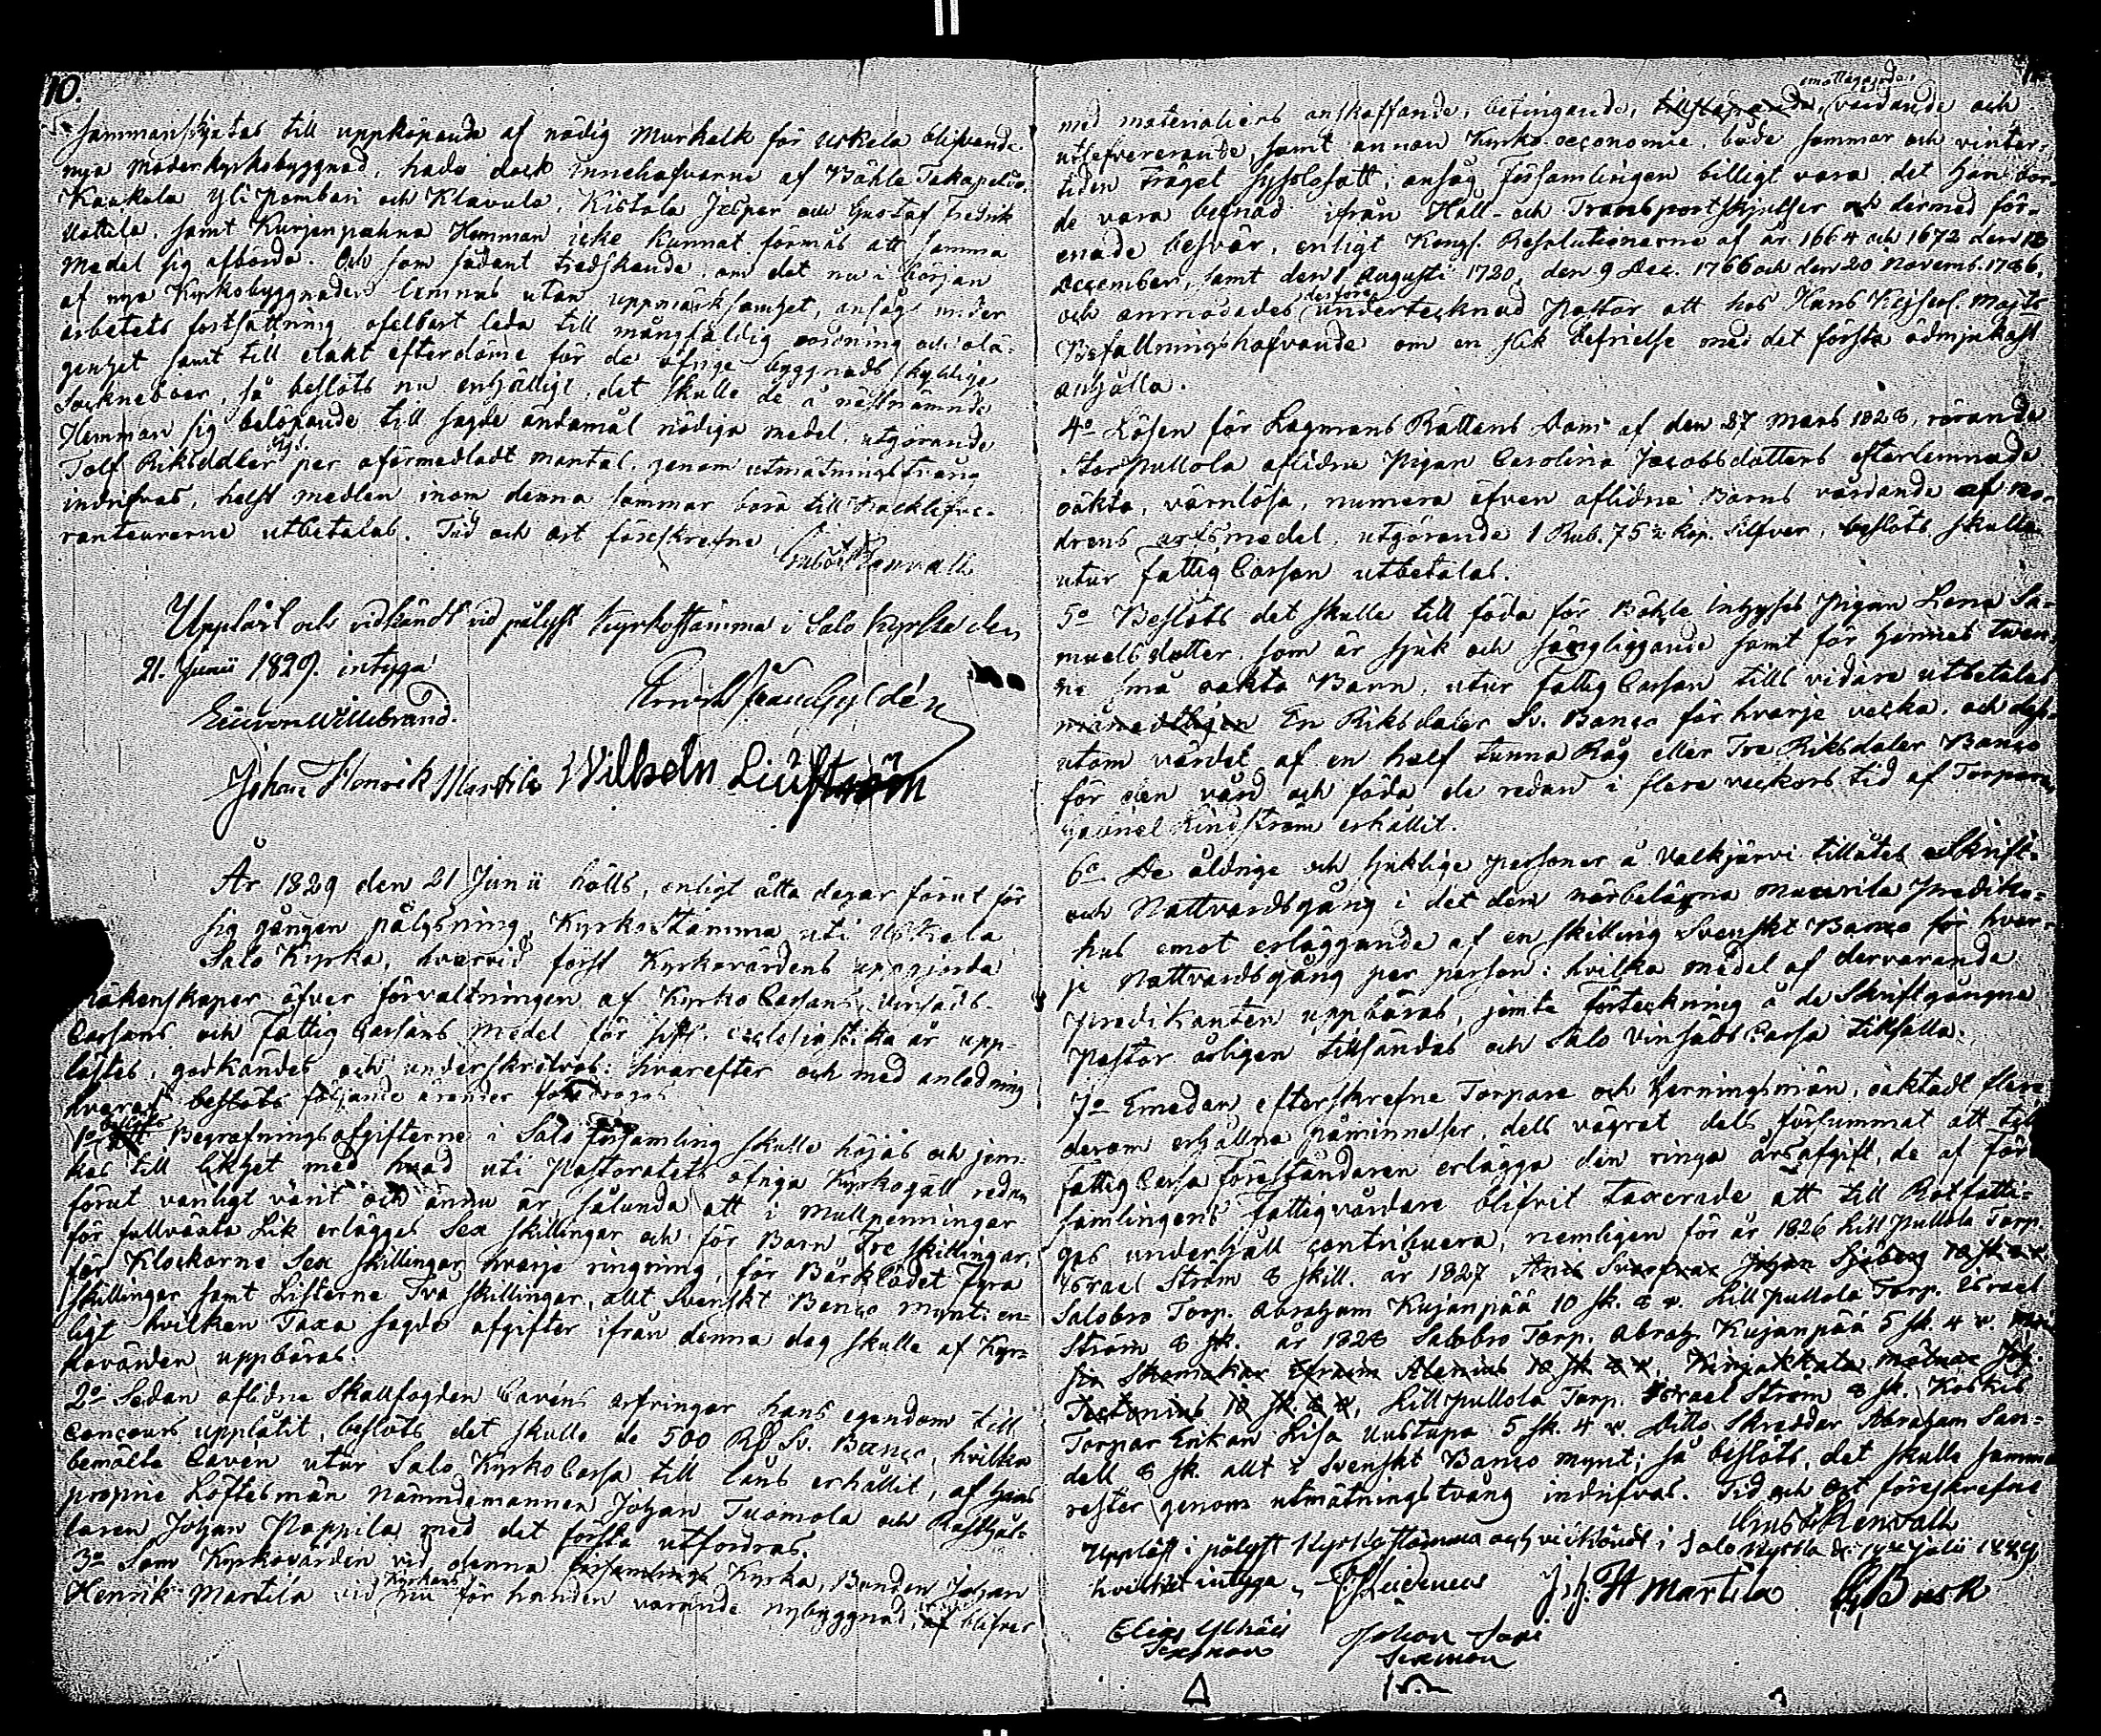 10.
sammanskjutas till uppköpande af nödig Murkalk för Uskela blifvande
nya Moderkyrkobyggnad, hade dock innehafvarne af Båhle Takapelto,
Kaukola Yli Pambari och Klavula, Kistola Jesper och Gustaf Fredrik
Uottila, samt Kurjenpahna Hemman icke kunnat förmås att samma
Medel sig afbörda. Och som sådant tredskande, om det nu i början
af nya Kyrkobyggnaden lemnas utan uppmärksamhet, ansågs under
arbetets fortsättning ofelbart leda till mångfaldig oordning och olä-
genhet samt till elakt efterdöme för de öfrige byggnads skyldige
Sockneboer, så beslöts nu enhälligt, det skulle de å nästnämnde
Hemman sig belöpande till sagde ändamål nödiga medel, utgörande
Tolf Riksdaler Rgs. per oförmedladt mantal, genom utmätningstvång
indrifvas, helst medlen inom denna sommar böra till Kalklefve-
ranteurerne utbetalas. Tid och ort föreskrefne
Gust. Renvall
Uppläst och vidkändt vid pålyst Kyrkostämma i Salo Kyrka den
21. Junii 1829. intyga
E. von Willebrand.
Johan Henrik Martila Wilhelm Liufström
År 1829 den 21 Junii hölls, enligt åtta dagar förut för
sig gången pålysning, Kyrkostämma uti Uskela
Salo Kyrka, hvarvid först Kyrkovärdens uppgjorda
räkenskaper öfver förvaltningen af Kyrko Cassans, Vinsäds-
Cassans och Fattig Cassans medel för sistl. ecclesiastika år upp-
lästes, godkändes och underskrefvos: hvarefter och med anledning
hvaraf beslöts följande ärender föredrogos
1o beslöts Att Begrafningsafgifterne i Salo församling skulle höjas och jem-
kas till likhet med hvad uti Pastoratets öfriga Kyrkogäll redan
förut vanligt varit och ännu är, sålunda att i Mullpenningar
för fullväxta Lik erlägges Sex skillingar och för Barn Tre skillingar,
för Klockorne Sex skillingar hvarje ringning, för Bårklädet Fyra
skillingar samt Listerne Två skillingar, allt Svenskt Banco mynt: en-
ligt hvilken Taxa sagde afgifter ifrån denna dag skulle af Kyr-
kovärden uppbäras.
2o Sedan aflidne Skallfogden Cavéns arfvingar hans egendom till
Concours upplåtit, beslöts det skulle de 500 Rd Sv. Banco, hvilka
bemälte Cavén utur Salo Kyrko Cassa till låns erhållit, af hans
proprie Löftesmän Nämndemannen Johan Tuomola och Rusthål-
laren Johan Pappila med det första utfordras.
3o Som Kyrkovärden vid denna församlings Kyrka, Bonden Johan
Henrik Martila vid Kyrkans nu för handen varande nybyggnad, af blifver
med materialiers anskaffande, betingande, tillskapande, emottagande, vårdande och
utlefvererande, samt annan Kyrko-oeconomie, både sommar och vinter-
tiden träget sysslosatt; ansåg Församlingen billigt vara det han bor-
de vara befriad ifrån Håll- och Transportskjutser och dermed för-
enade besvär, enligt Kongl. Resolutionerne af år 1664 och 1672 den 18
December, samt den 1 Augusti 1720, den 9 Dec. 1766 och den 20 Novemb. 1786,
och anmodades derföre undertecknad Pastor att hos Hans Kejserl. Majts
Befallningshafvande om en slik befrielse med det första ödmjukast
anhålla.
4o Lösen för Lagmans Rättens Dom af den 27 Mars 1828, rörande
Storpullola aflidne Pigan Carolina Jacobsdotters efterlemnade
oäkta, värnlösa, numera äfven aflidne Barns vårdande af mo-
drens arfsmedel, utgörande 1 Rub. 75 2/7 Kop. Silfver, beslöts, skulle
utur Fattig Cassan utbetalas.
5o Beslöts det skulle till föda för Båhle Inhyses Pigan Lena Sa-
muelsdotter, som är sjuk och sängliggande samt för hennes twen-
ne små oäkta Barn, utur Fattig Cassan tills vidare utbetalas
månedtligen En Riksdaler Sv. Banco för hvarje vecka, och dess-
utom värdet af en half tunna Råg eller Tre Riksdaler Banco
för den vård och föda de redan i flere veckors tid af Torparen
Gabriel Lindström erhållit.
6o De åldrige och sjuklige personer å Valkjärvi tillåtes Skrift-
och Nattvardsgång i det dem närbelägna Muurila Prediko-
hus emot erläggande af en skilling Svenskt Banco för hvar-
je Nattvardsgång per person: hvilka medel af dervarande
Predikanten uppbäras, jemte förteckning å de Skriftgångne
Pastor årligen tillsändas och Salo Vinsäds Cassa tillfalla.
7o Emedan efterskrefne Torpare och Herningsmän, oaktadt flere
derom erhållna påminnelser, dels vägrat dels försummat att till
Fattig Cassa föreståndaren erlägga den ringa årsafgift, de af För-
samlingens Fattigvårdare blifvit taxerade att till Rotfatti-
gas underhåll contribuera, nemligen för år 1826 Lillpullola Torp.
Israel Ström 8 skill. år 1827 Anis Svarfvar Johan Sjöberg 10 sk 8 r.
Salobro Torp. Abraham Kujanpää 10 sk. 8 r. Lillpullola Torp. Israel
Ström 8 sk. år 1828 Salobro Torp. Abrah. Kujanpää 5 sk. 4 r.
Skomakar Efraim Alenius 10 sk 8 r, Kinjakkala mölnar Joh.
Tectonius 10 sk. 8 r, Lillpullola Torp. Israel Ström 8 sk. Koskis
Torpar Enkan Lisa Uustupa 5 sk. 4 r. Ditto Skreddar Abraham San-
dell 8 sk. allt i Svenskt Banco mynt; så beslöts, det skulle samma
rester genom utmätningstvång indrifvas. Tid och Ort föreskrefne
Gust. Renvall
Uppläst i pålyst Kyrkostämma och vidkändt i Salo Kyrka d. 19de Julii 1829
hvilket intyga, Heidenius J.H. Martila Busk
Elias Ylhäis Johan Jari
Sexman Sexman